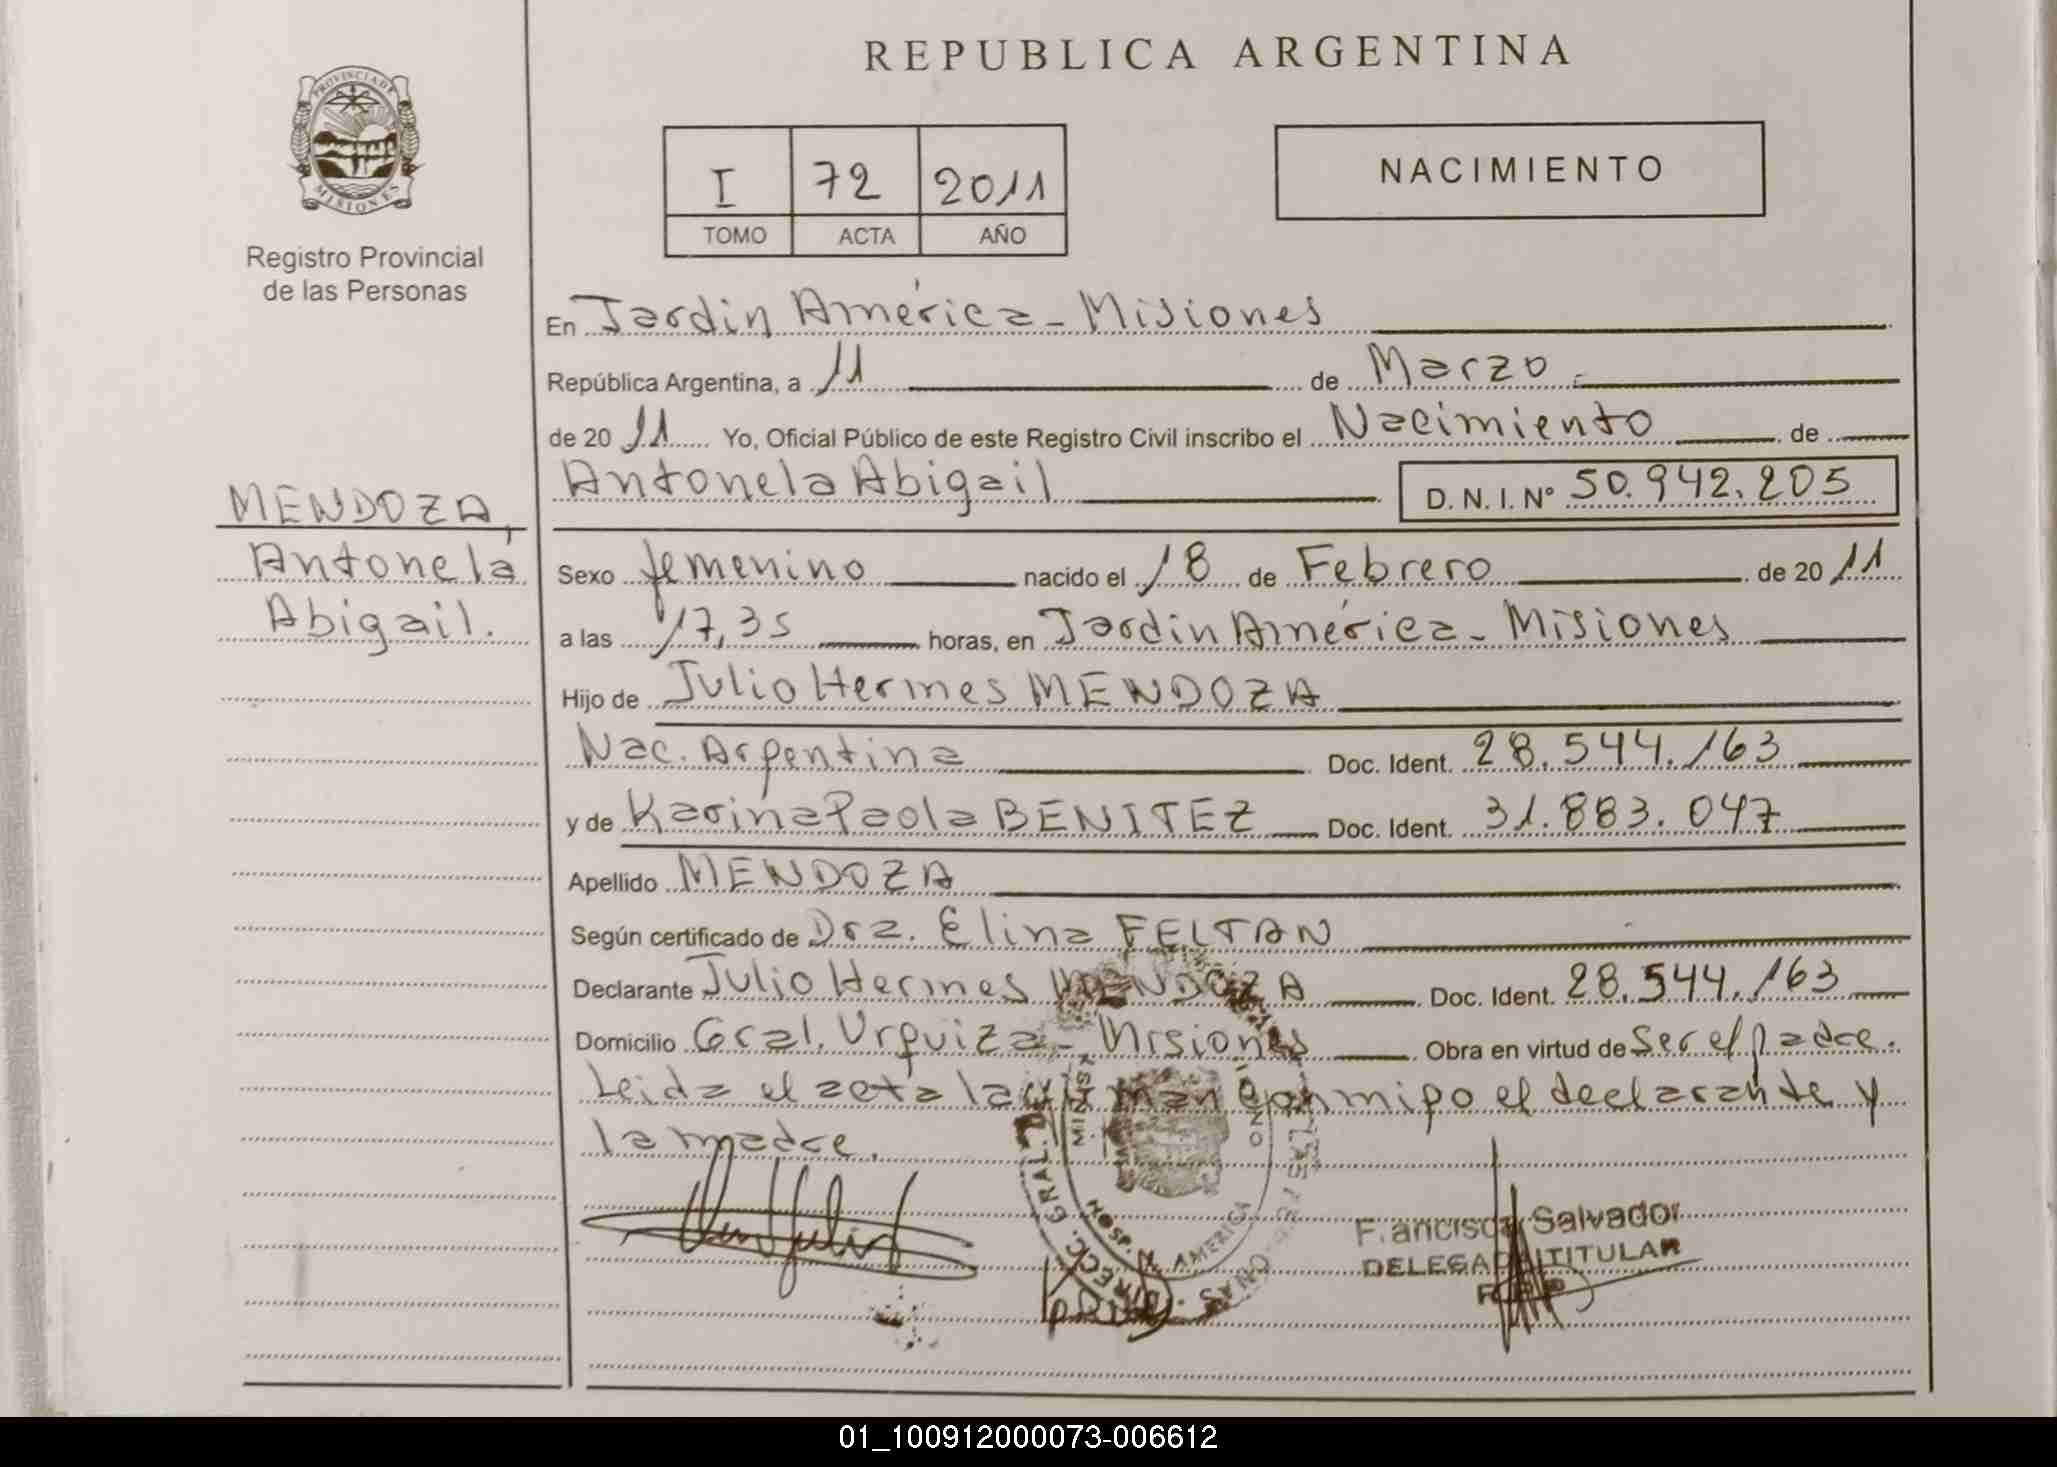 REPUBLICA ARGENTINA
PROVINCIA DE
MISIONES
Registro Provincial
de las Personas
I 72 2011
TOMO ACTA AÑO
NACIMIENTO
En Jardin América - Misiones
República Argentina, a 11 de Marzo
de 2011 Yo, Oficial Público de este Registro Civil inscribo el Nacimiento de
Antonela Abigail D. N. I. N° 50.942.205
MENDOZA,
Antonela
Abigail.
Sexo femenino nacido el 18 de Febrero de 2011
a las 17,35 horas, en Jardin América - Misiones
Hijo de Julio Hermes MENDOZA
Nac. Argentina Doc. Ident. 28.544.163
y de Karina Paola BENITEZ Doc. Ident. 31.883.047
Apellido MENDOZA
Según certificado de Dra. Elina FELTAN
Declarante Julio Hermes MENDOZA Doc. Ident. 28.544.163
Domicilio Gral. Urquiza - Misiones Obra en virtud de Ser el padre.
Leida el acta la firman conmigo el declarante y
la madre.
HOSP. AMERICA
Francisco Salvador
DELEGADO TITULAR
01_100912000073-006612